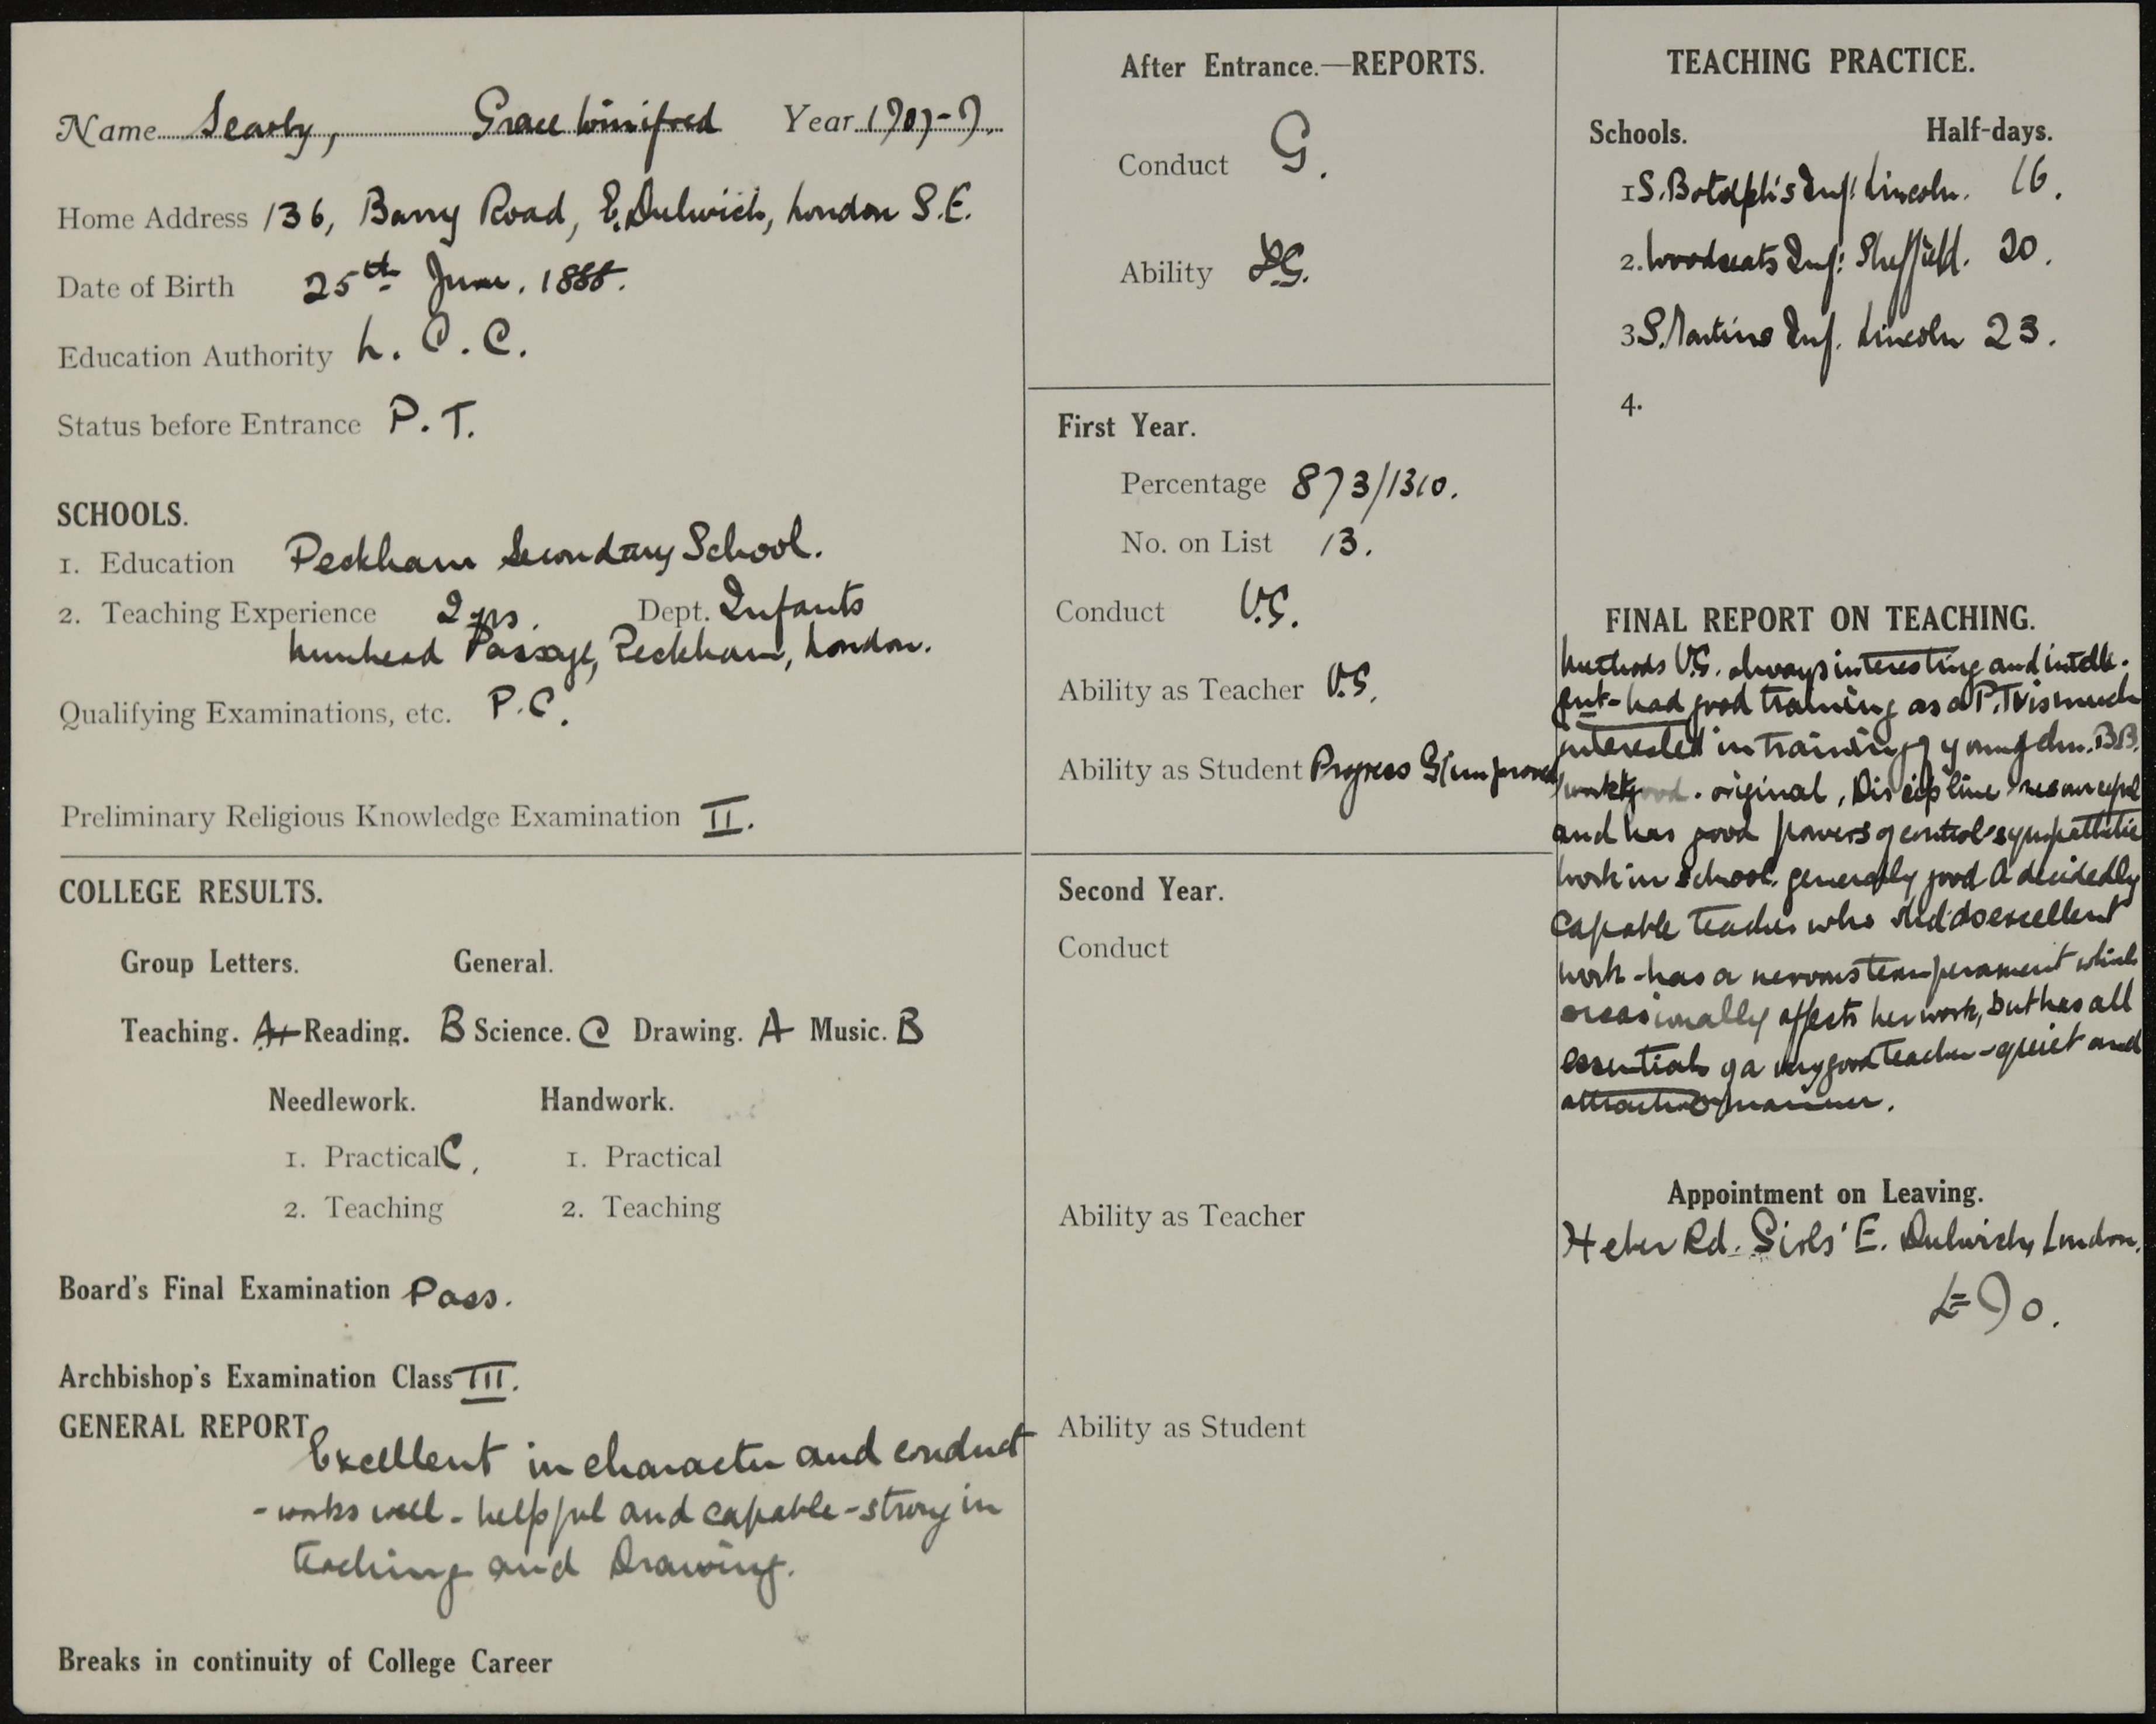 Name Searby, Grace Winifred Year 1907-9.
Home Address 136, Barry Road, E. Dulwich, London S.E.
Date of Birth 25th June, 1888.
Education Authority L.C.C.
Status before Entrance P.T.
SCHOOLS.
1. Education Peckham Secondary School.
2. Teaching Experience 2 yrs. Dept. Infants
Nunhead Passage, Peckham, London.
Qualifying Examinations, etc. P.C.
Preliminary Religious Knowledge Examination II.
COLLEGE RESULTS.
Group Letters. General.
Teaching. A+ Reading. B Science. C Drawing. A Music. B
Needlework. Handwork.
1. Practical C. 1. Practical
2. Teaching 2. Teaching
Board's Final Examination Pass.
Archbishop's Examination Class III.
GENERAL REPORT
Excellent in character and conduct
- works well - helpful and capable - strong in
teaching and Drawing.
Breaks in continuity of College Career
After Entrance.—REPORTS.
Conduct G.
Ability
First Year.
Percentage 873/1310.
No. on List 13.
Conduct V.G.
Ability as Teacher V.G.
Ability as Student Progress G (improved
Second Year.
Conduct
Ability as Teacher
Ability as Student
TEACHING PRACTICE.
Schools. Half-days.
1 S. Botolph's Inf: Lincoln. 16.
2. Woodseats Inf: Sheffield. 20.
3 S. Martins Inf. Lincoln 23.
4.
FINAL REPORT ON TEACHING.
Methods V.G. always interesting and intelli-
gent - had good training as a P.T. is much
interested in training of young chn. BB.
work good. original, Discipline resourceful
and has good powers of control sympathetic
work in school generally good A decidedly
capable teacher who shd do excellent
work - has a nervous temperament which
occasionally affects her work, but has all
essentials of a very good teacher - quiet and
attractive manner.
Appointment on Leaving.
Heber Rd. Girls' E. Dulwich, London.
£90.